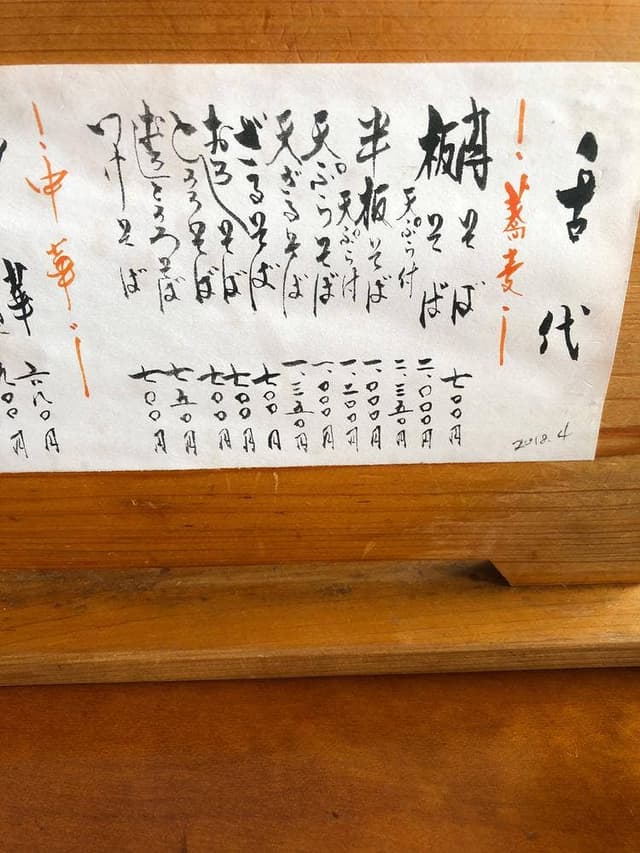 古代
2018.4
蕎麦
そば 七〇〇円
板そば 二、〇〇〇円
天ぷら付 二、三五〇円
半板そば 一、〇〇〇円
天ぷら付 一、二〇〇円
天ぷらそば 一、〇〇〇円
天ざるそば 一、三五〇円
ざるそば 七〇〇円
おろしそば 七〇〇円
とろろそば 七〇〇円
おろしとろろそば 七五〇円
つけそば 七〇〇円
中華
華 六八〇円
九〇〇円